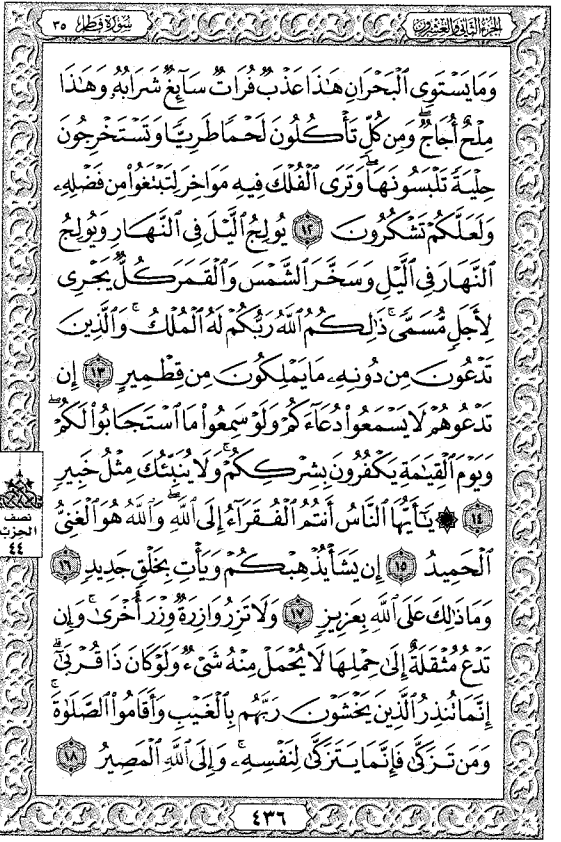 الجزء الثاني والعشرون
سورة فطر ٣٥
وَمَا يَسْتَوِي ٱلْبَحْرَانِ هَٰذَا عَذْبٌ فُرَاتٌ سَآئِغٌ شَرَابُهُۥ وَهَٰذَا
مِلْحٌ أُجَاجٌ ۖ وَمِن كُلٍّ تَأْكُلُونَ لَحْمًا طَرِيًّا وَتَسْتَخْرِجُونَ
حِلْيَةً تَلْبَسُونَهَا ۖ وَتَرَى ٱلْفُلْكَ فِيهِ مَوَاخِرَ لِتَبْتَغُوا۟ مِن فَضْلِهِۦ
وَلَعَلَّكُمْ تَشْكُرُونَ ١٢ يُولِجُ ٱلَّيْلَ فِي ٱلنَّهَارِ وَيُولِجُ
ٱلنَّهَارَ فِي ٱلَّيْلِ وَسَخَّرَ ٱلشَّمْسَ وَٱلْقَمَرَ كُلٌّ يَجْرِي
لِأَجَلٍ مُّسَمًّى ۚ ذَٰلِكُمُ ٱللَّهُ رَبُّكُمْ لَهُ ٱلْمُلْكُ ۚ وَٱلَّذِينَ
تَدْعُونَ مِن دُونِهِۦ مَا يَمْلِكُونَ مِن قِطْمِيرٍ ١٣ إِن
تَدْعُوهُمْ لَا يَسْمَعُوا۟ دُعَآءَكُمْ وَلَوْ سَمِعُوا۟ مَا ٱسْتَجَابُوا۟ لَكُمْ ۖ
وَيَوْمَ ٱلْقِيَٰمَةِ يَكْفُرُونَ بِشِرْكِكُمْ ۚ وَلَا يُنَبِّئُكَ مِثْلُ خَبِيرٍ
١٤ ۞ يَٰٓأَيُّهَا ٱلنَّاسُ أَنتُمُ ٱلْفُقَرَآءُ إِلَى ٱللَّهِ ۖ وَٱللَّهُ هُوَ ٱلْغَنِيُّ
ٱلْحَمِيدُ ١٥ إِن يَشَأْ يُذْهِبْكُمْ وَيَأْتِ بِخَلْقٍ جَدِيدٍ ١٦
وَمَا ذَٰلِكَ عَلَى ٱللَّهِ بِعَزِيزٍ ١٧ وَلَا تَزِرُ وَازِرَةٌ وِزْرَ أُخْرَىٰ ۚ وَإِن
تَدْعُ مُثْقَلَةٌ إِلَىٰ حِمْلِهَا لَا يُحْمَلْ مِنْهُ شَيْءٌ وَلَوْ كَانَ ذَا قُرْبَىٰٓ ۗ
إِنَّمَا تُنذِرُ ٱلَّذِينَ يَخْشَوْنَ رَبَّهُم بِٱلْغَيْبِ وَأَقَامُوا۟ ٱلصَّلَوٰةَ ۚ
وَمَن تَزَكَّىٰ فَإِنَّمَا يَتَزَكَّىٰ لِنَفْسِهِۦ ۚ وَإِلَى ٱللَّهِ ٱلْمَصِيرُ ١٨
نصف
الحزب
٤٤
٤٣٦